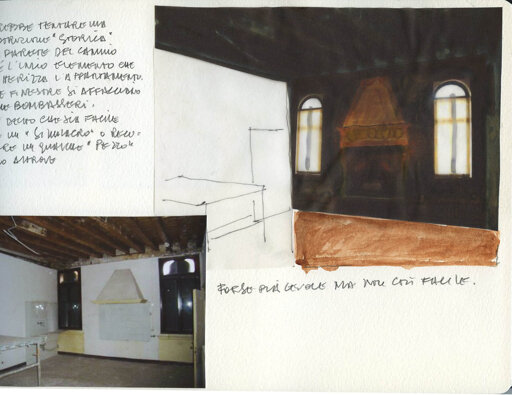 REBBE TENTARE UNA
"STORICA"
PARETE DEL CAMINO
È L'UNICO ELEMENTO CHE
L'APPARTAMENTO.
E FINESTRE SI AFFACCIANO
BOMBASSERI.
DETTO CHE SIA FACILE
UN "SIMULACRO" O RECU-
RE UN QUALCHE "PEZZO"
ALTROVE
FORSE PIÙ CEVOLE MA NON COSÌ FACILE.